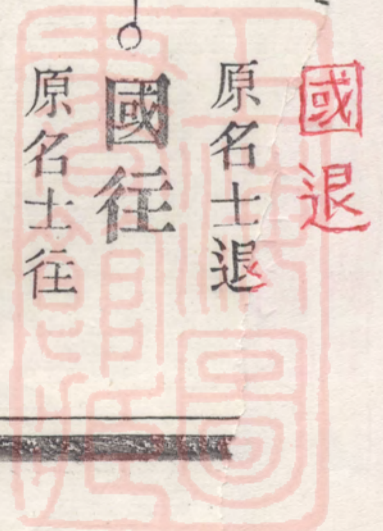 國退
原名士退
國往
原名士往